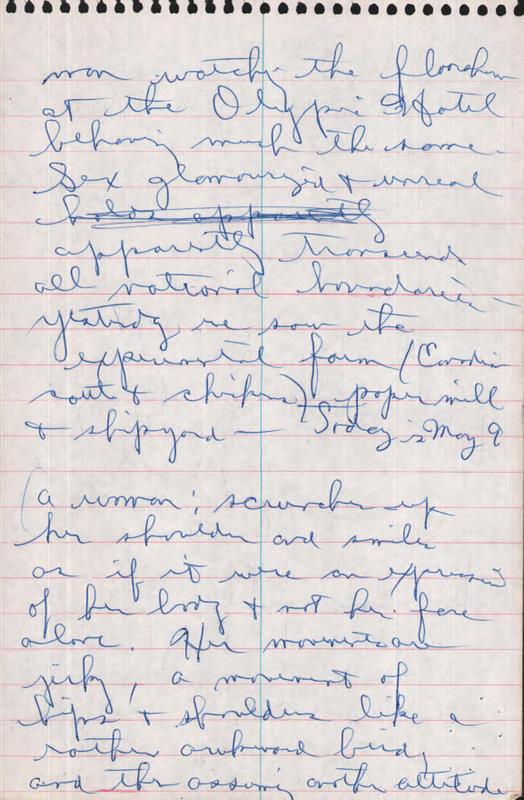 man watching the floorshow
at the Olympic Hotel
behaving much the same.
Sex glamourized & unreal
apparently
apparently transcends
all national boundaries —
yesterday we saw the
experimental farm (
& chickens) paper mill
& shipyard — Today is May 9
(a woman; scrunches up
her shoulders and smiles
as if it were an expression
of her body & not her face
alone. Her movements are
jerky, a movement of
hips & shoulders like a
rather awkward bird,
and then assuming another attitude